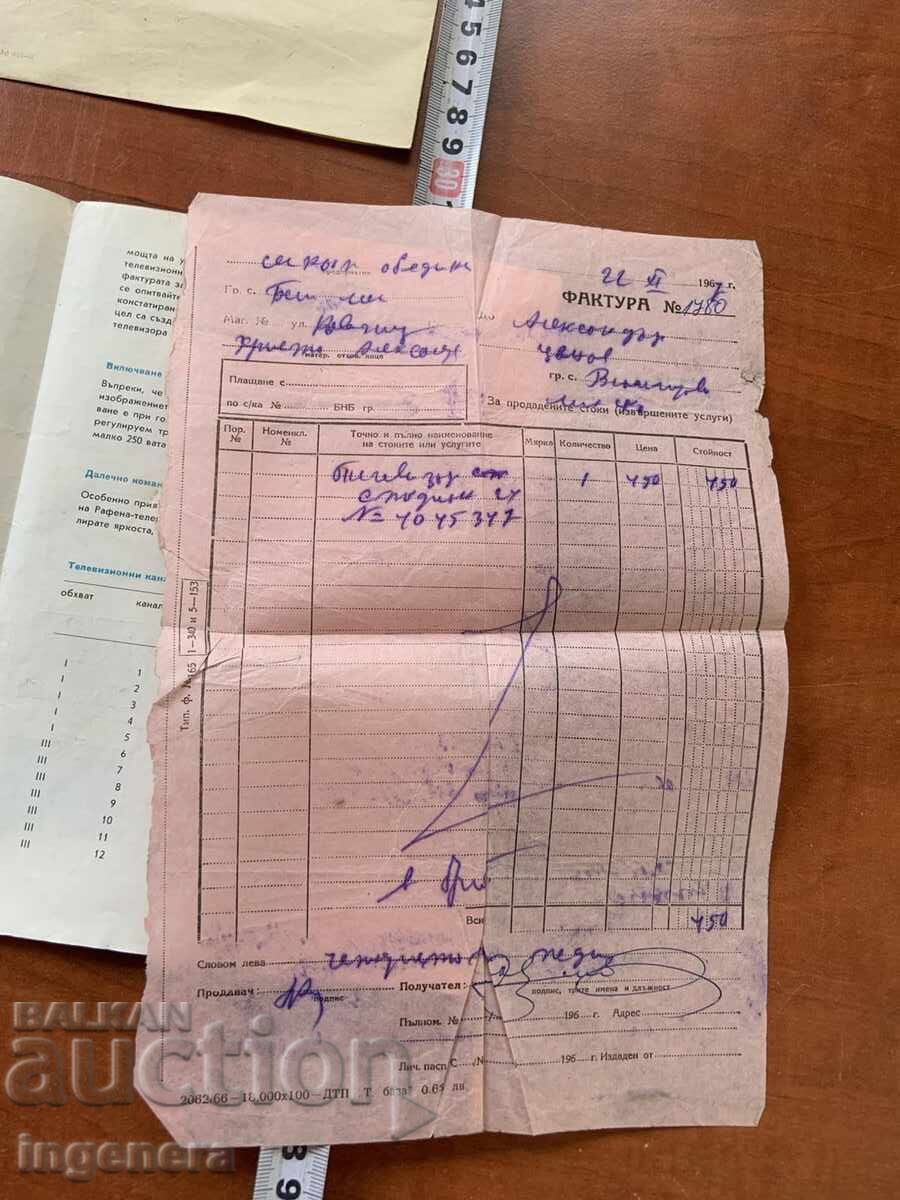 4 5 6 7 8 9 30
мощта на у
телевизионни
фактурата за
се опитвайте
констатиран
цел са създ
телевизора
Включване
Въпреки, че
изображениет
ване е при го
регулируем тр
малко 250 вата
Далечно коман
Особенно прия
на Рафена-теле
лирате яркоста,
Телевизионни кана
обхват канал
I 1
I 2
I 3
I 4
I 5
III 6
III 7
III 8
III 9
III 10
III 11
III 12
22 XI 1967 г.
Гр. с.
ФАКТУРА № 1780
Маг. № ул. до Александър
Христо Александ Цанов
матер. отгов. лице
гр. с.
Плащане с
по с/ка № БНБ гр.
За продадените стоки (извършените услуги)
Пор. № Номенкл. № Точно и пълно наименование на стоките или услугите Мярка Количество Цена Стойност
Телевизор 1 450 450
№ 4045347
Тип. ф. № 65 1—340 и 5—153
Вси 450
Словом лева
Продавач Получател
подпис подпис, трите имена и длъжност
Пълном. № 196 г. Адрес
Лич. пасп. С № 196 г. Издаден от
2062/66—18,000x100—ДТП Т. база 0.65 лв.
BALKAN
auction
ingenera
3 9